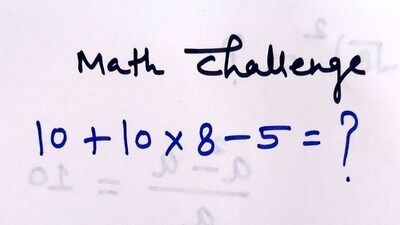 Math Challenge
10 + 10 × 8 – 5 = ?